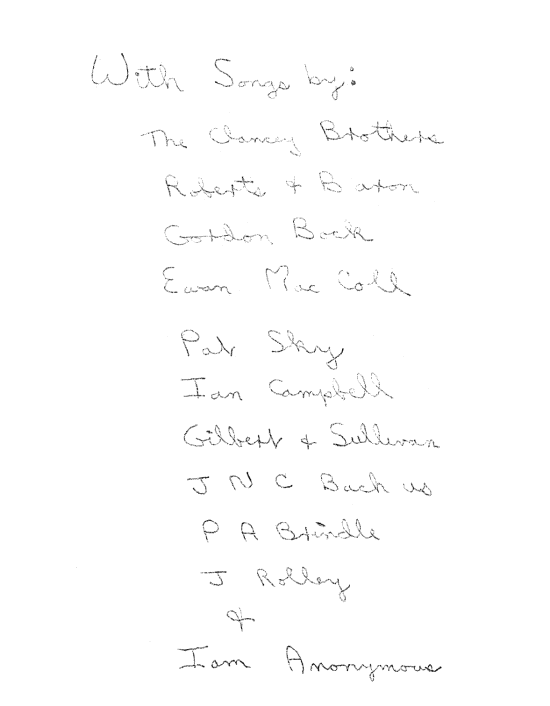 With Songs by:
The Clancey Brothers
Roberts & Baron
Gordon Bock
Ewan Mac Coll
Pat Sky
Ian Campbell
Gilbert & Sullivan
J N C Back us
P A Brindle
J Rolley
&
I am Anonymous